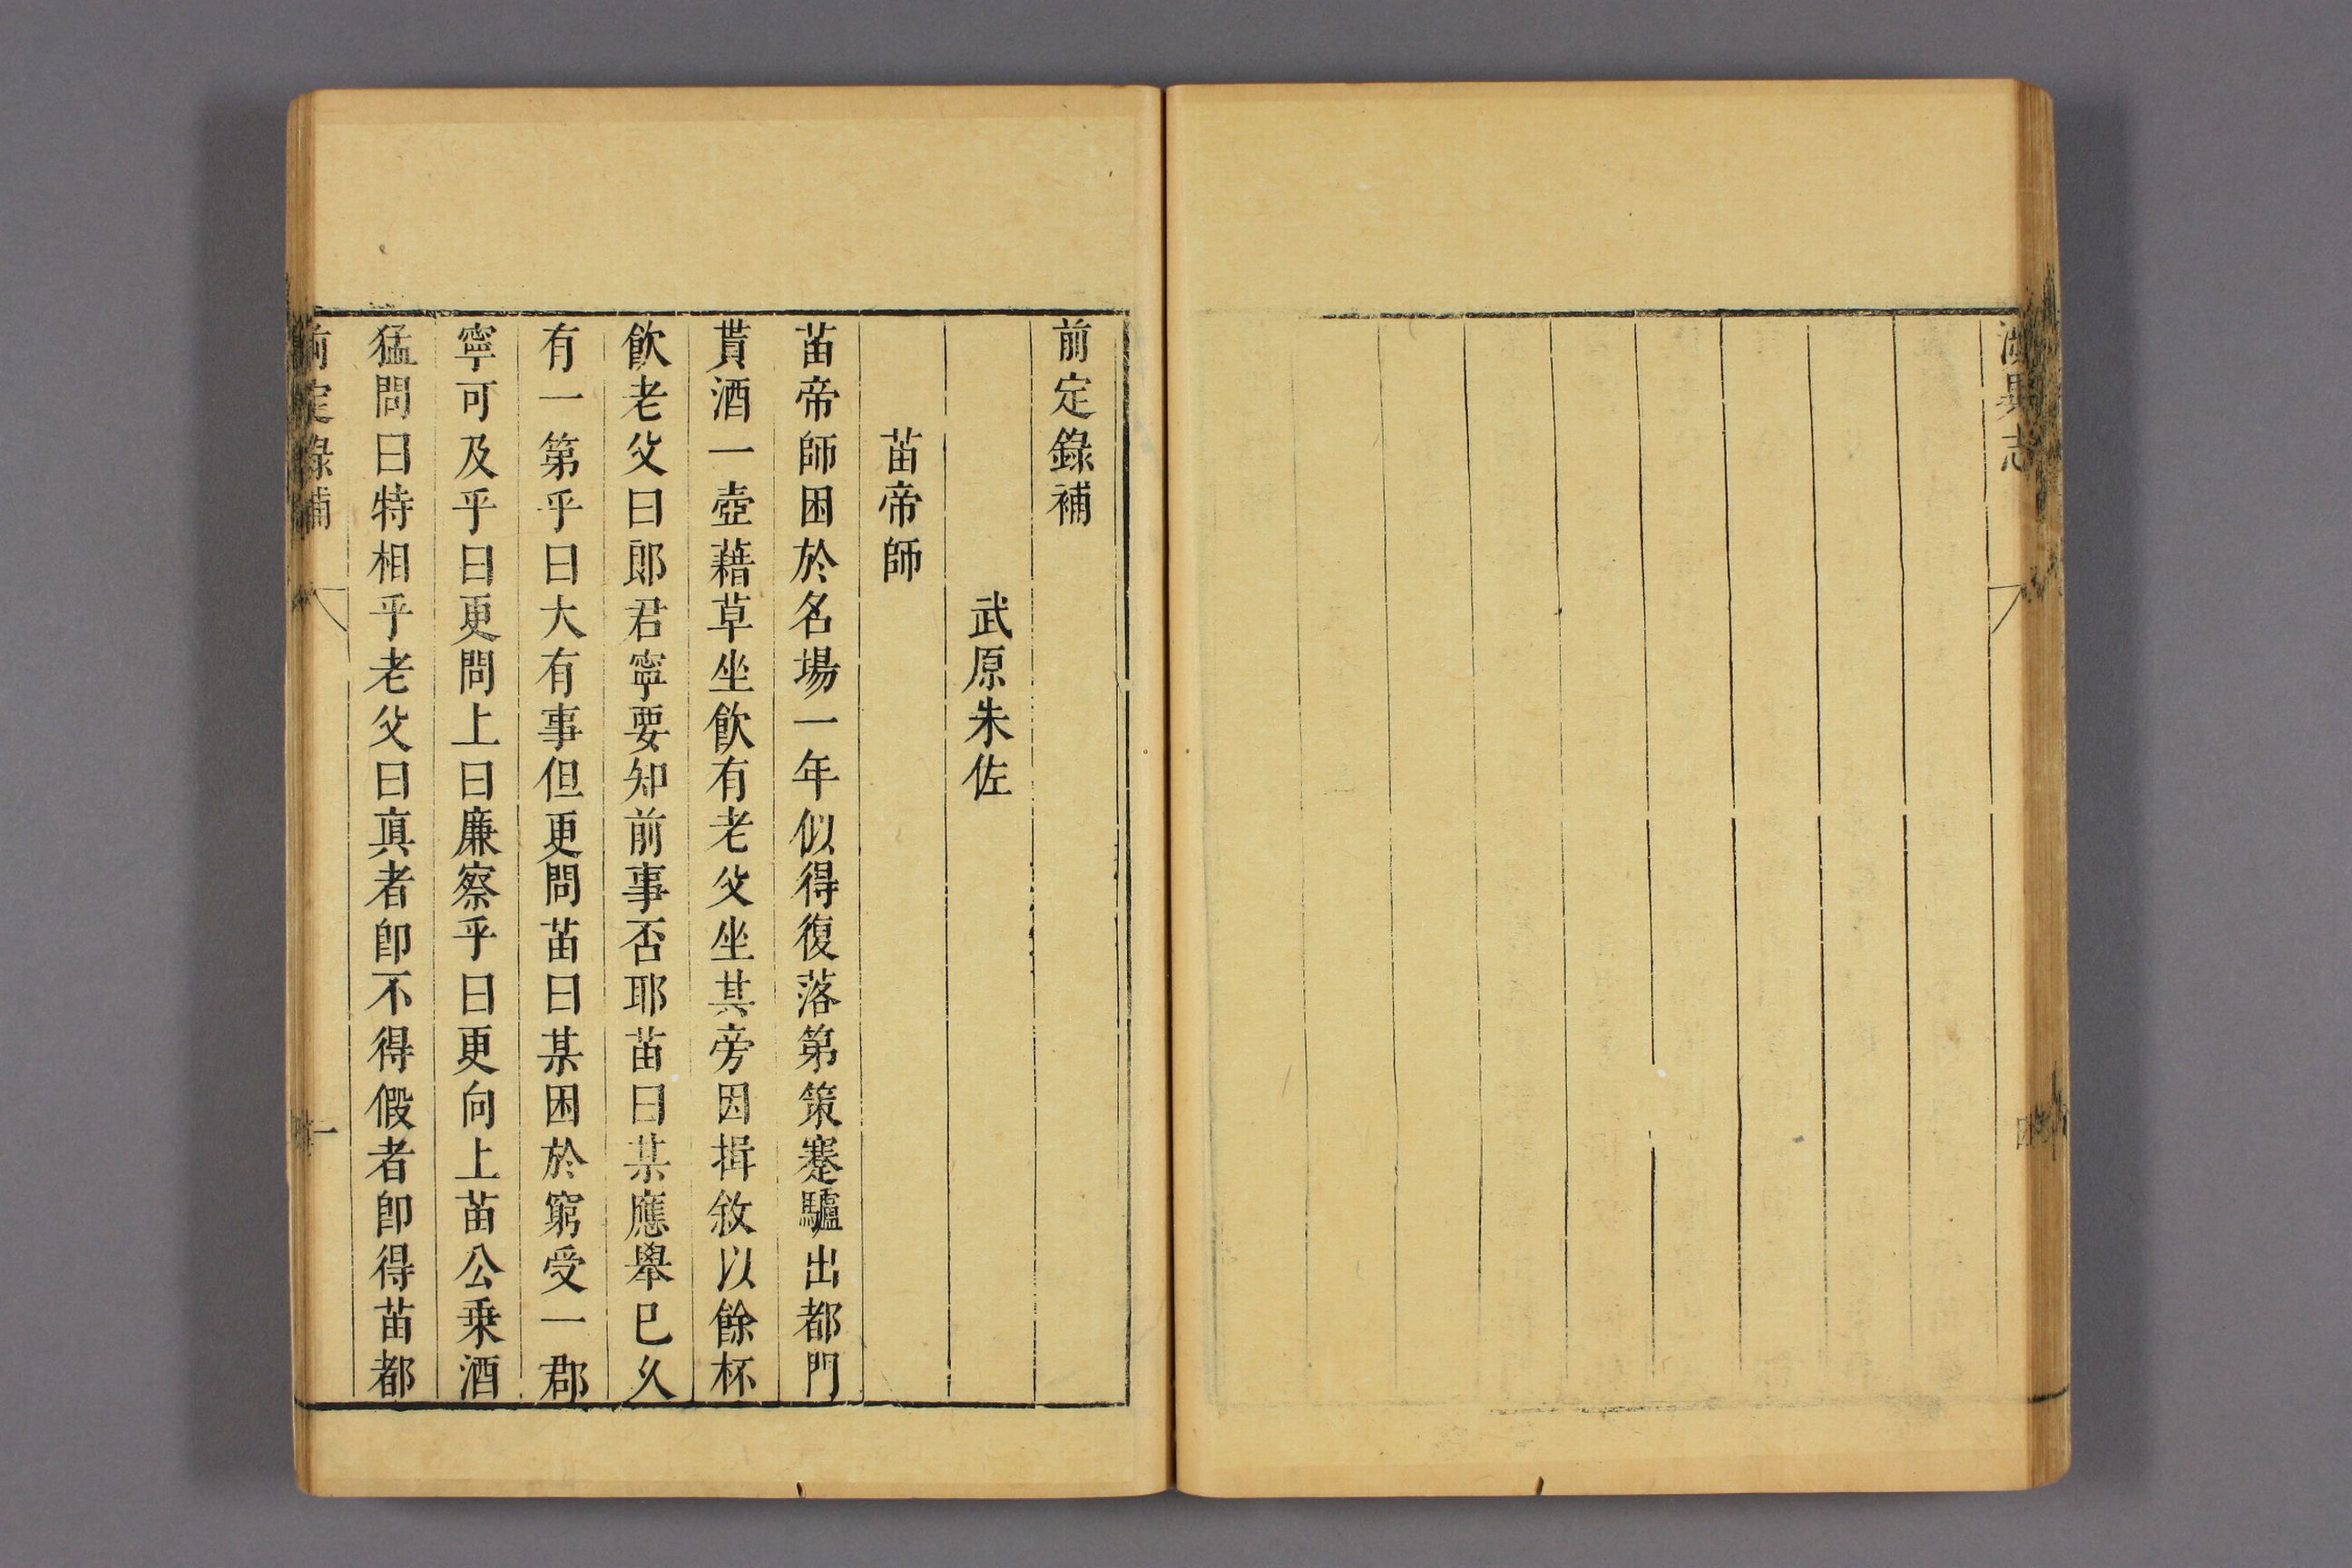 異志
四
前定錄補
武原朱佐
苖帝師
苖帝師困於名場一年似得復落第策蹇驢出都門
貰酒一壺藉草坐飲有老父坐其旁因揖敘以餘杯
飲老父曰郎君寧要知前事否耶苖曰某應舉已久
有一第乎曰大有事但更問苖曰某困於窮受一郡
寧可及乎曰更問上曰廉察乎曰更向上苖公乗酒
猛問曰特相乎老父曰真者卽不得假者卽得苖都
前定錄補
一